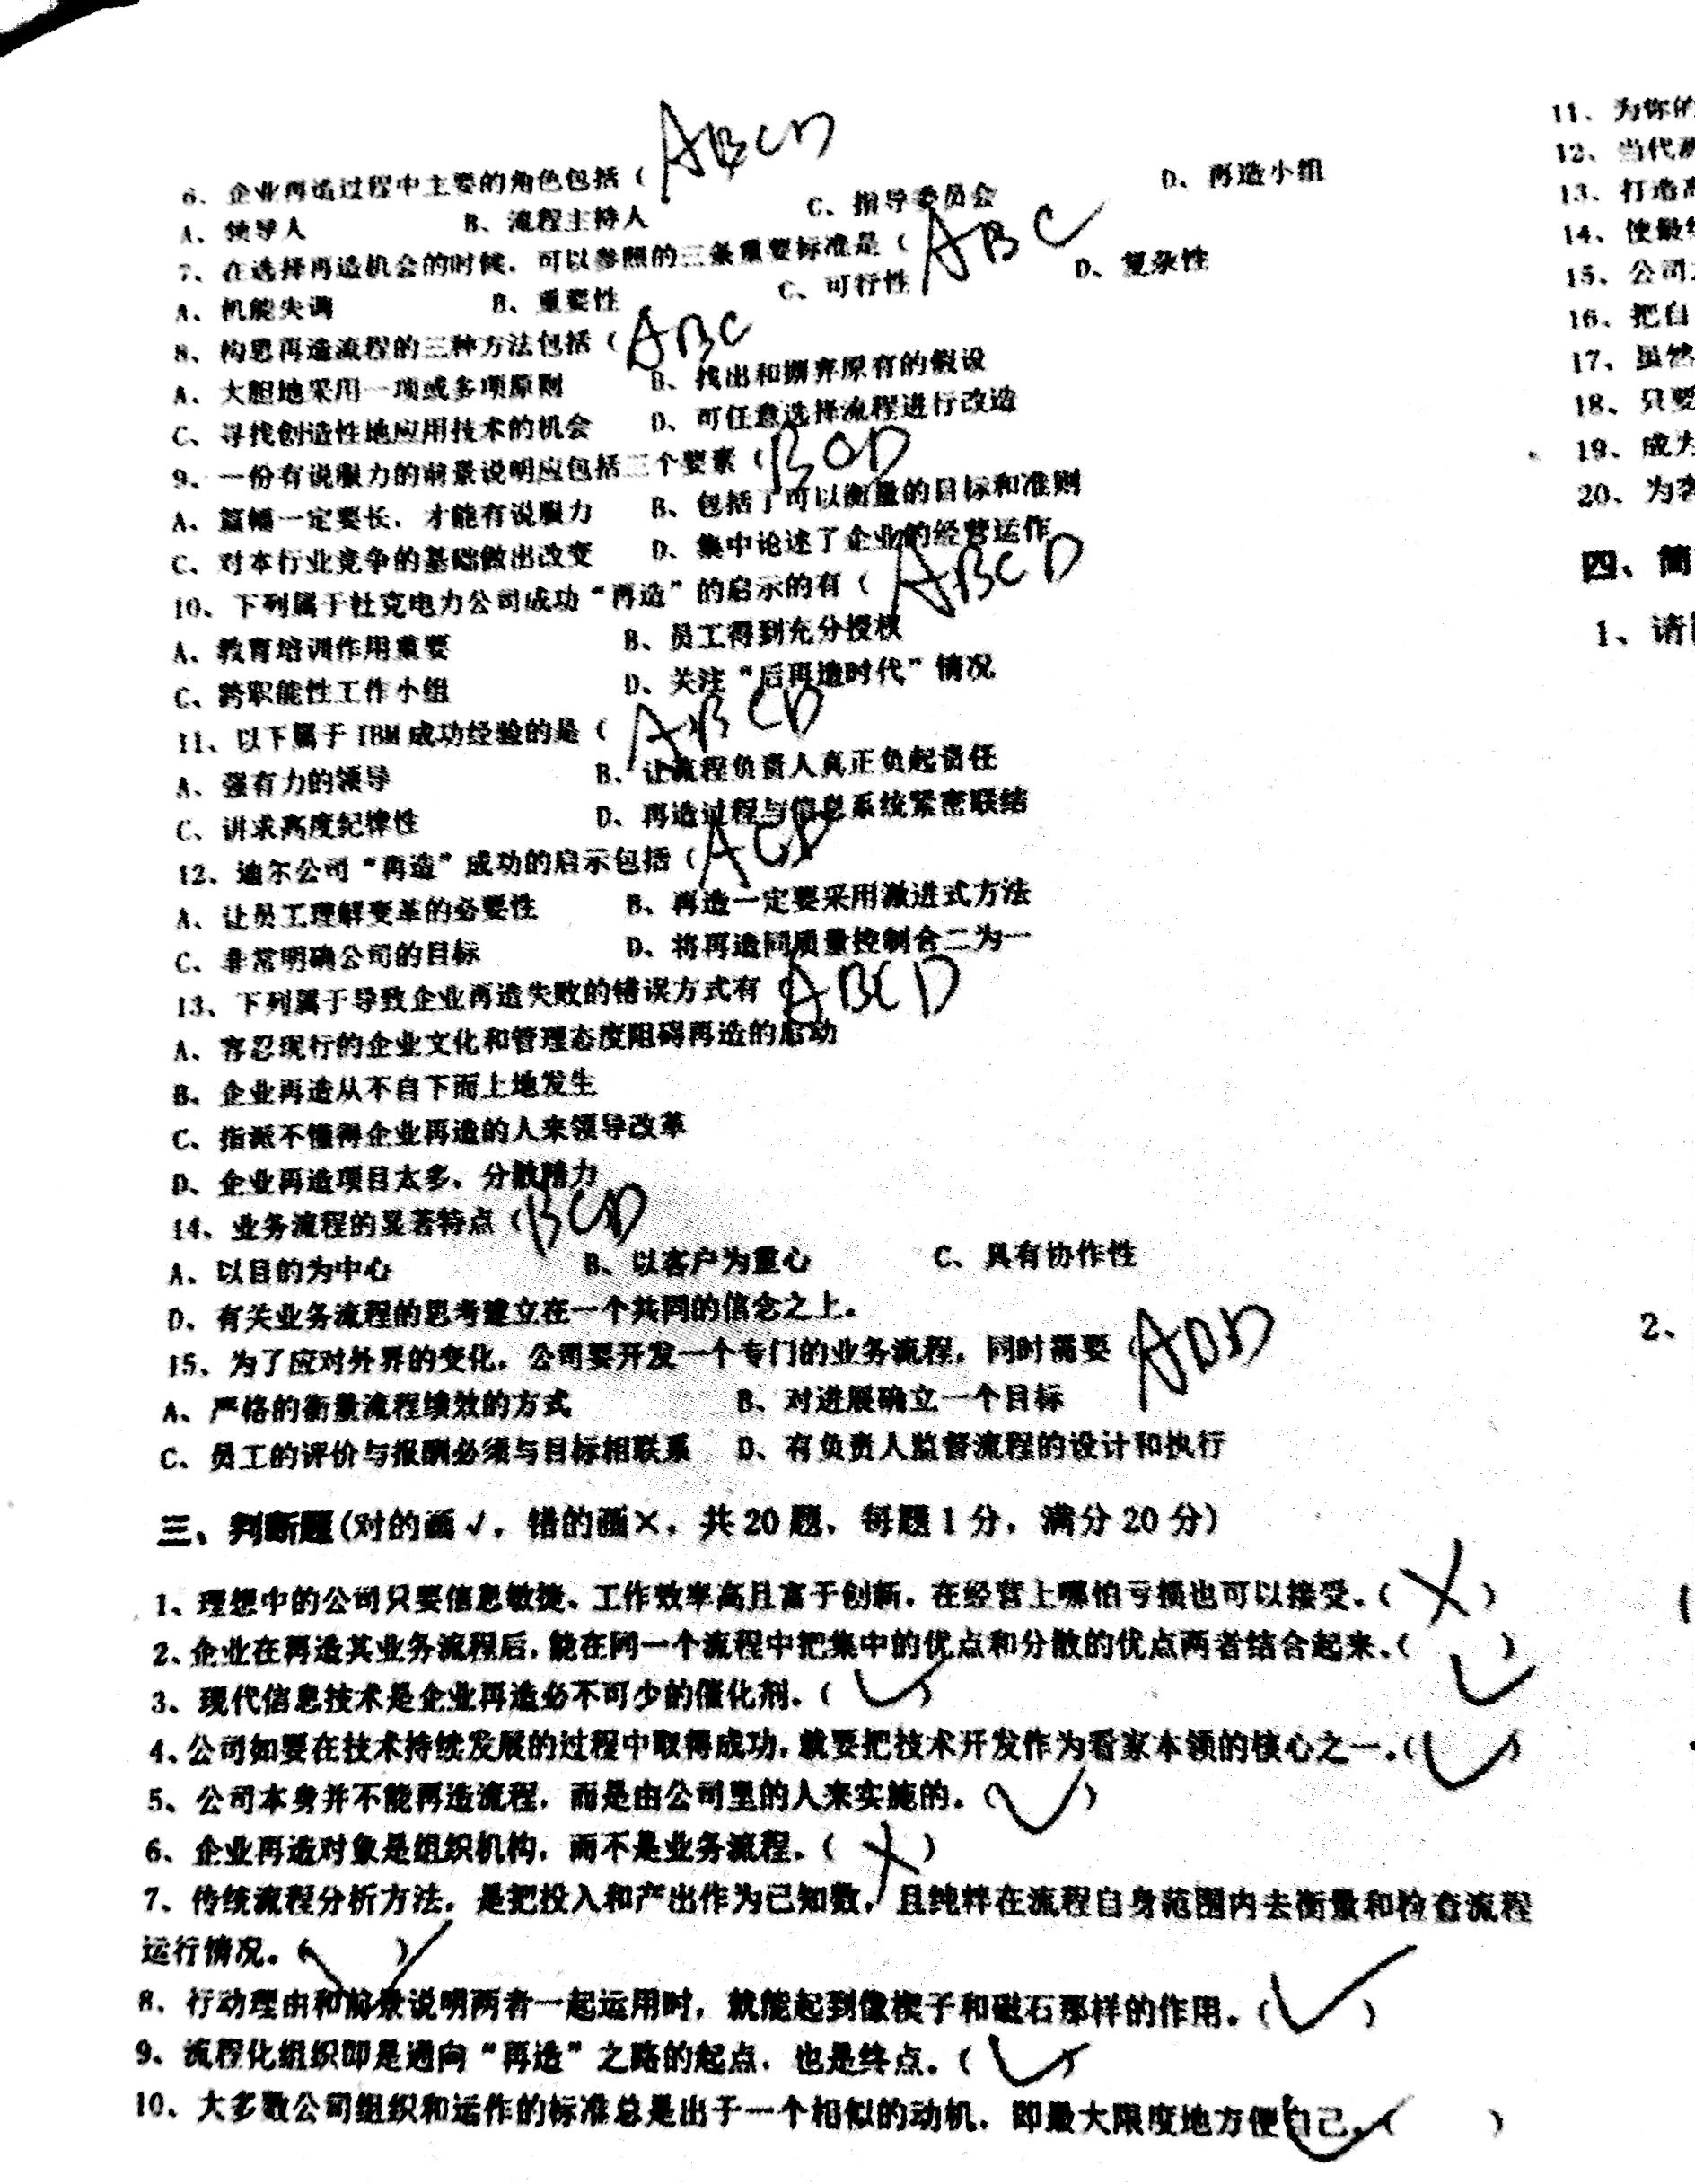 ABCD
6、企业再造过程中主要的角色包括（
A、领导人 B、流程主持人 C、指导委员会 D、再造小组
7、在选择再造机会的时候，可以参照的三条重要标准是（ABC
A、机能失调 B、重要性 C、可行性 D、复杂性
8、构思再造流程的三种方法包括（ABC
A、大胆地采用一项或多项原则 B、找出和摒弃原有的假设
C、寻找创造性地应用技术的机会 D、可任意选择流程进行改造
9、一份有说服力的前景说明应包括三个要素（BCD
A、篇幅一定要长，才能有说服力 B、包括了可以衡量的目标和准则
C、对本行业竞争的基础做出改变 D、集中论述了企业的经营运作
10、下列属于杜克电力公司成功“再造”的启示的有（ABCD
A、教育培训作用重要 B、员工得到充分授权
C、跨职能性工作小组 D、关注“后再造时代”情况
11、以下属于 IBM 成功经验的是（ABCD
A、强有力的领导 B、让流程负责人真正负起责任
C、讲求高度纪律性 D、再造过程与信息系统紧密联结
12、迪尔公司“再造”成功的启示包括（ACD
A、让员工理解变革的必要性 B、再造一定要采用激进式方法
C、非常明确公司的目标 D、将再造同质量控制合二为一
13、下列属于导致企业再造失败的错误方式有（ABCD
A、容忍现行的企业文化和管理态度阻碍再造的启动
B、企业再造从不自下而上地发生
C、指派不懂得企业再造的人来领导改革
D、企业再造项目太多，分散精力
14、业务流程的显著特点（BCD
A、以目的为中心 B、以客户为重心 C、具有协作性
D、有关业务流程的思考建立在一个共同的信念之上。
15、为了应对外界的变化，公司要开发一个专门的业务流程，同时需要（
A、严格的衡量流程绩效的方式 B、对进展确立一个目标
C、员工的评价与报酬必须与目标相联系 D、有负责人监督流程的设计和执行
三、判断题(对的画√，错的画×，共 20 题，每题 1 分，满分 20 分)
1、理想中的公司只要信息敏捷、工作效率高且富于创新，在经营上哪怕亏损也可以接受。（×）
2、企业在再造其业务流程后，能在同一个流程中把集中的优点和分散的优点两者结合起来。（√）
3、现代信息技术是企业再造必不可少的催化剂。（√）
4、公司如要在技术持续发展的过程中取得成功，就要把技术开发作为看家本领的核心之一。（√）
5、公司本身并不能再造流程，而是由公司里的人来实施的。（√）
6、企业再造对象是组织机构，而不是业务流程。（×）
7、传统流程分析方法，是把投入和产出作为已知数，且纯粹在流程自身范围内去衡量和检查流程
运行情况。（√）
8、行动理由和前景说明两者一起运用时，就能起到像楔子和磁石那样的作用。（√）
9、流程化组织即是通向“再造”之路的起点，也是终点。（√）
10、大多数公司组织和运作的标准总是出于一个相似的动机，即最大限度地方便自己。（√）
11、为你的
12、当代
13、打造
14、使最
15、公司
16、把自
17、虽然
18、只要
19、成为
20、为
四、简
1、请
2、